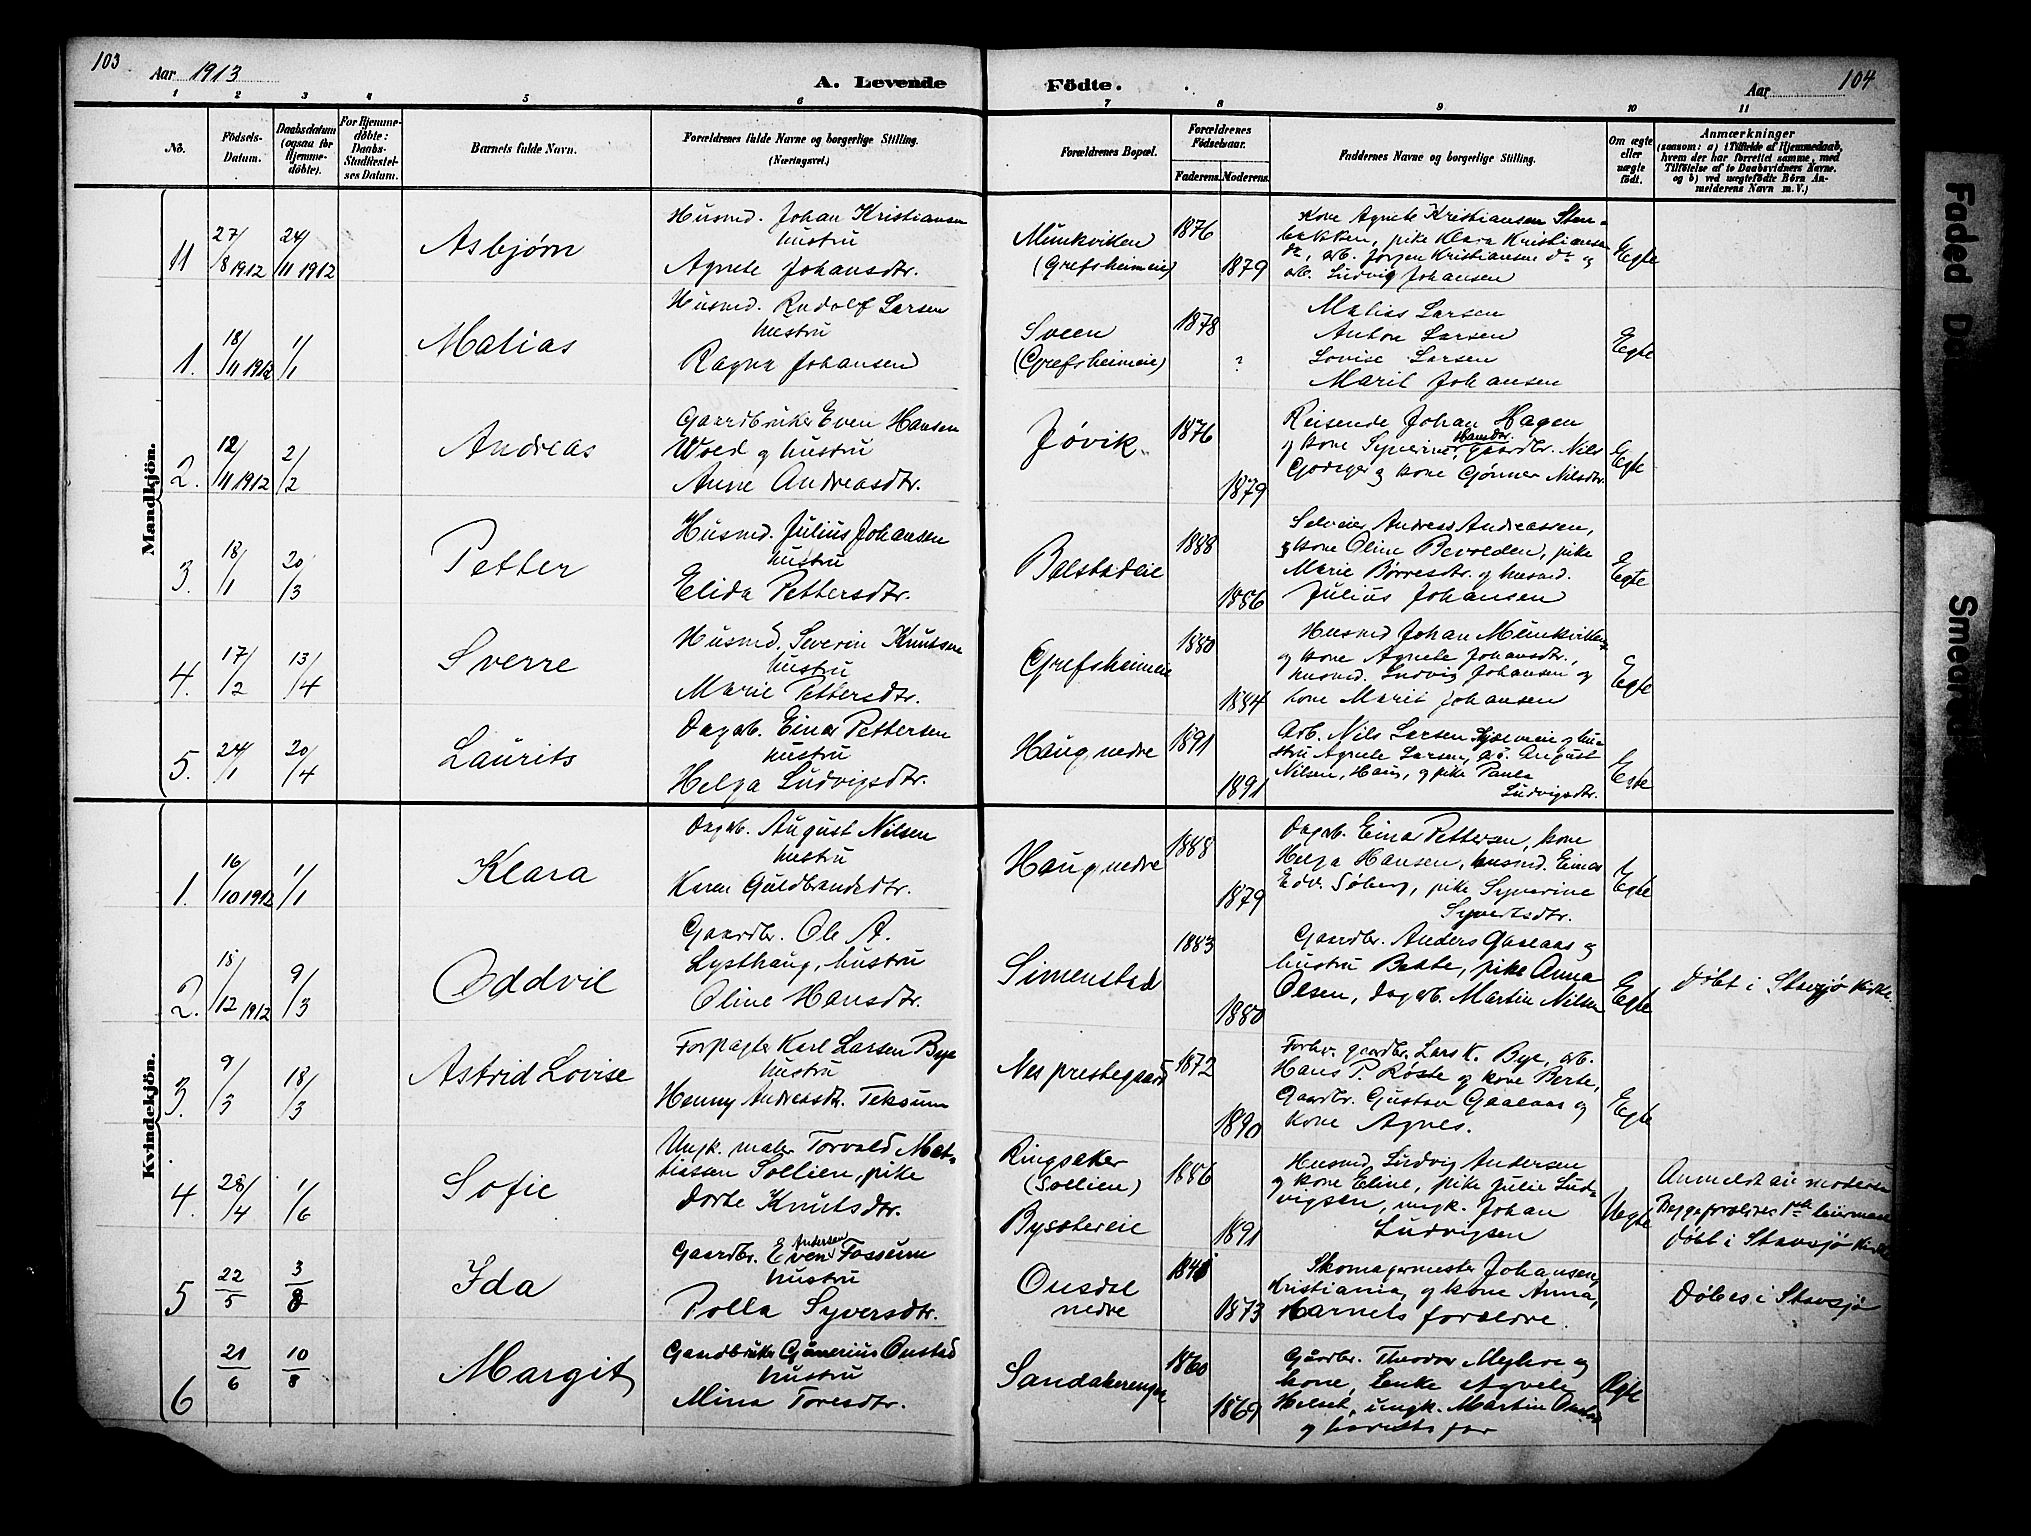 103
Aar 1913
A. Levende
Födte.
Aar
104
1 2 3 4 5 6 7 8 9 10 11
No.
Födsels-
Datum.
Daabsdatum
(ogsaa for
Hjemme-
döbte).
For Hjemme-
döbte:
Daabs-
Stadfæstel-
ses Datum.
Barnets fulde Navn.
Forældrenes fulde Navne og borgerlige Stilling.
(Næringsvei.)
Forældrenes Bopæl.
Forældrenes
Födselsaar.
Faderens. Moderens.
Faddernes Navne og borgerlige Stilling.
Om ægte
eller
uægte
födt.
Anmærkninger
(saasom: a) i Tilfælde af Hjemmedaab,
hvem der har forrettet samme, med
Tilföielse af to Daabsvidners Navne.
og b) ved uægtefödte Börn An-
melderens Navn m. V.)
Mandkjön.
11
27/8 1912
24/11 1912
Asbjørn
Husmd. Johan Kristiansen
hustru
Agnete Johansdtr.
Munkviken
(Grefsheimeie)
1876
1879
Kone Agnete Kristiansen Sten-
bakken, pike Klara Kristiansen
do, arb. Jørgen Kristiansen do og
arb. Ludvig Johansen
Egte
1.
18/11 1912
1/1
Matias
Husmd. Rudolf Larsen
hustru
Ragna Johansen
Sveen
(Grefsheimeie)
1878
?
Matias Larsen
Anton Larsen
Lovise Larsen
Marit Johansen
Egte
2.
12/11 1912
2/2
Andreas
Gaardbruker Even Hansen
Wold og hustru
Anne Andreasdtr.
Jøvik
1876
1879
Reisende Johan Hagen
og kone Syverine Hansdtr., gaardbr. Nils
og kone Gjønner Nilsdtr.
Egte
3.
18/1
20/3
Petter
Husmd. Julius Johansen
hustru
Elida Pettersdtr.
Balstadeie
1888
1886
Selveier Andreas Andreassen,
og kone Oline Bevolden, pike
Marie Børresdtr. og husmd.
Julius Johansen
Egte
4.
17/2
13/4
Sverre
Husmd. Severin Knutsen
hustru
Marie Pettersdtr.
Grefsheimeie
1880
1884
Husmd Johan Munkviken
og kone Agnete Johansdtr.,
husmd. Ludvig Johansen og
kone Marit Johansen
Egte
5.
24/1
20/4
Laurits
Dagarb. Einar Pettersen
hustru
Helga Ludvigsdtr.
Haug, nedre
1891
1891
Arb. Nils Larsen og hu-
stru Agnete Larsen, August
Nilsen, Haug, og pike Paula
Ludvigsdtr.
Egte
Kvindekjön.
1.
16/10 1912
1/1
Klara
Dagarb. August Nilsen
hustru
Karen Guldbrandsdtr.
Haug, nedre
1888
1879
Dagarb. Einar Pettersen, kone
Helga Hansen, husmd. Einar
Edv. Søberg, pike Syverine
Syvertsdtr.
Egte
2.
18/12 1912
9/3
Oddvil
Gaardbr. Ole A.
Lysthaug, hustru
Oline Hansdtr.
Simenstad
1883
1880
Gaardbr. Anders Gaalaas og
hustru Beate, pike Anna
Olsen, dagarb. Martin Nilsen
Egte
Døbt i Stavsjø kirke.
3.
9/3
18/3
Astrid Lovise
Forpagter Karl Larsen Bye
hustru
Henny Andreasdtr. Teksum
Nes prestegaard
1872
1890
Forhv. gaardbr. Lars K. Bye, arb.
Hans P. Røste og kone Berte,
Gaardbr. Gustav Gaalaas og
kone Agnes.
Egte
4.
28/4
1/6
Sofie
Ungk. maler Torvald Mat-
tiassen Sollien, pike
Dorte Knutsdtr.
Ringsaker
(Sollien)
Byssetereie
1886
1891
Husmd Ludvig Andersen
og kone Eline, pike Julie Lud-
vigsen, ungk. Johan
Ludvigsen
Uegte
Anmeldt av moderen
Begge forældres 1ste leiermaal
Døbt i Stavsjø kirke
5
22/5
3/8
Ida
Gaardbr. Even Andersen Fossum
hustru
Polla Syversdtr.
Onsdal
nedre
1873
Skomagermester Johansen,
Kristiania, og kone Anna,
Barnets forældre.
Døbt i Stavsjø
6
21/6
10/8
Margit
Gaardbruker Gunerius Onstad
hustru
Mina Toresdtr.
Sandakerengen
1860
1869
Gaardbr. Theodor Myhre og
kone, Enke Agnete
ungk. Martin Onstad
og barnets far
Ægte
Faded
Smeared